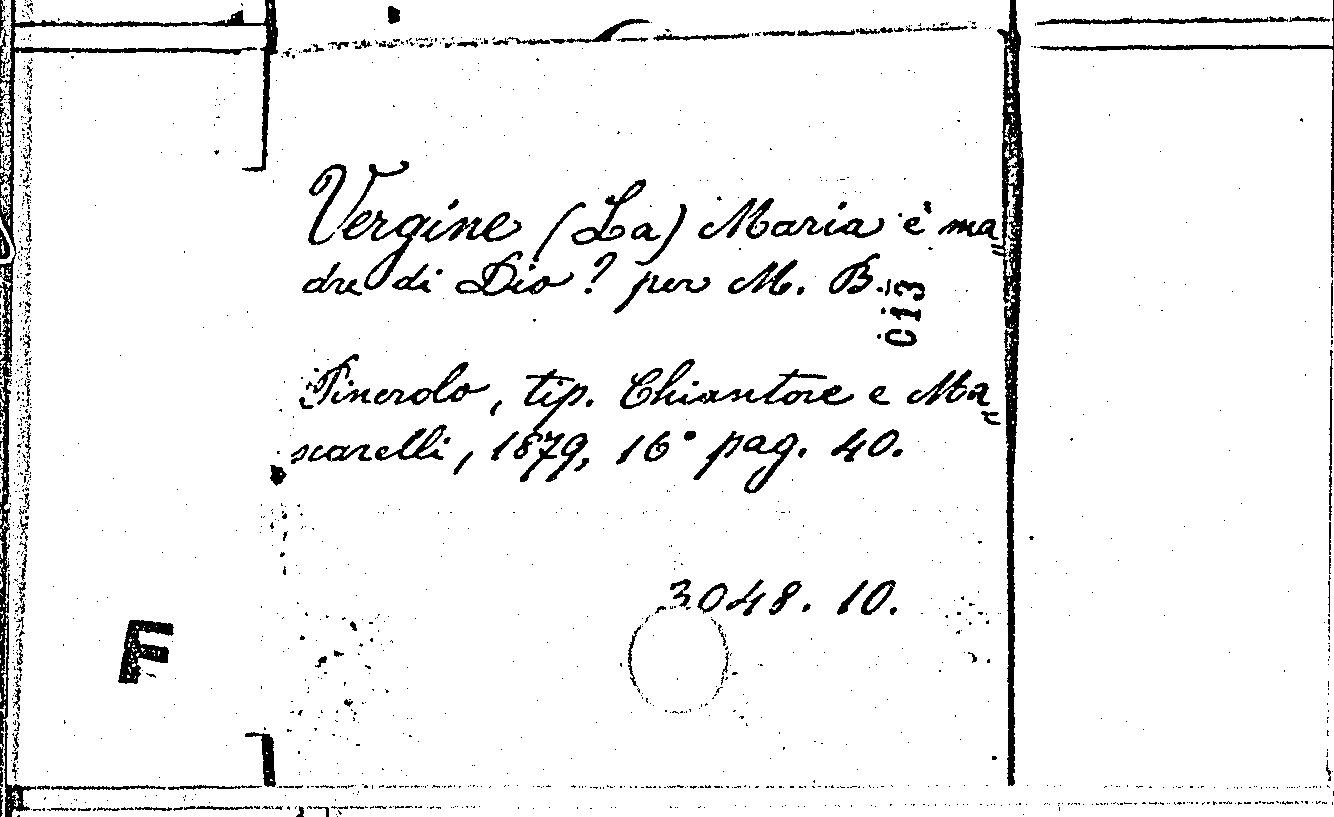 Vergine (La) Maria è ma=
dre di Dio? per M. B.
013
Pinerolo, tip. Chiantore e Ma=
scarelli, 1879, 16° pag. 40.
3048. 10.
F